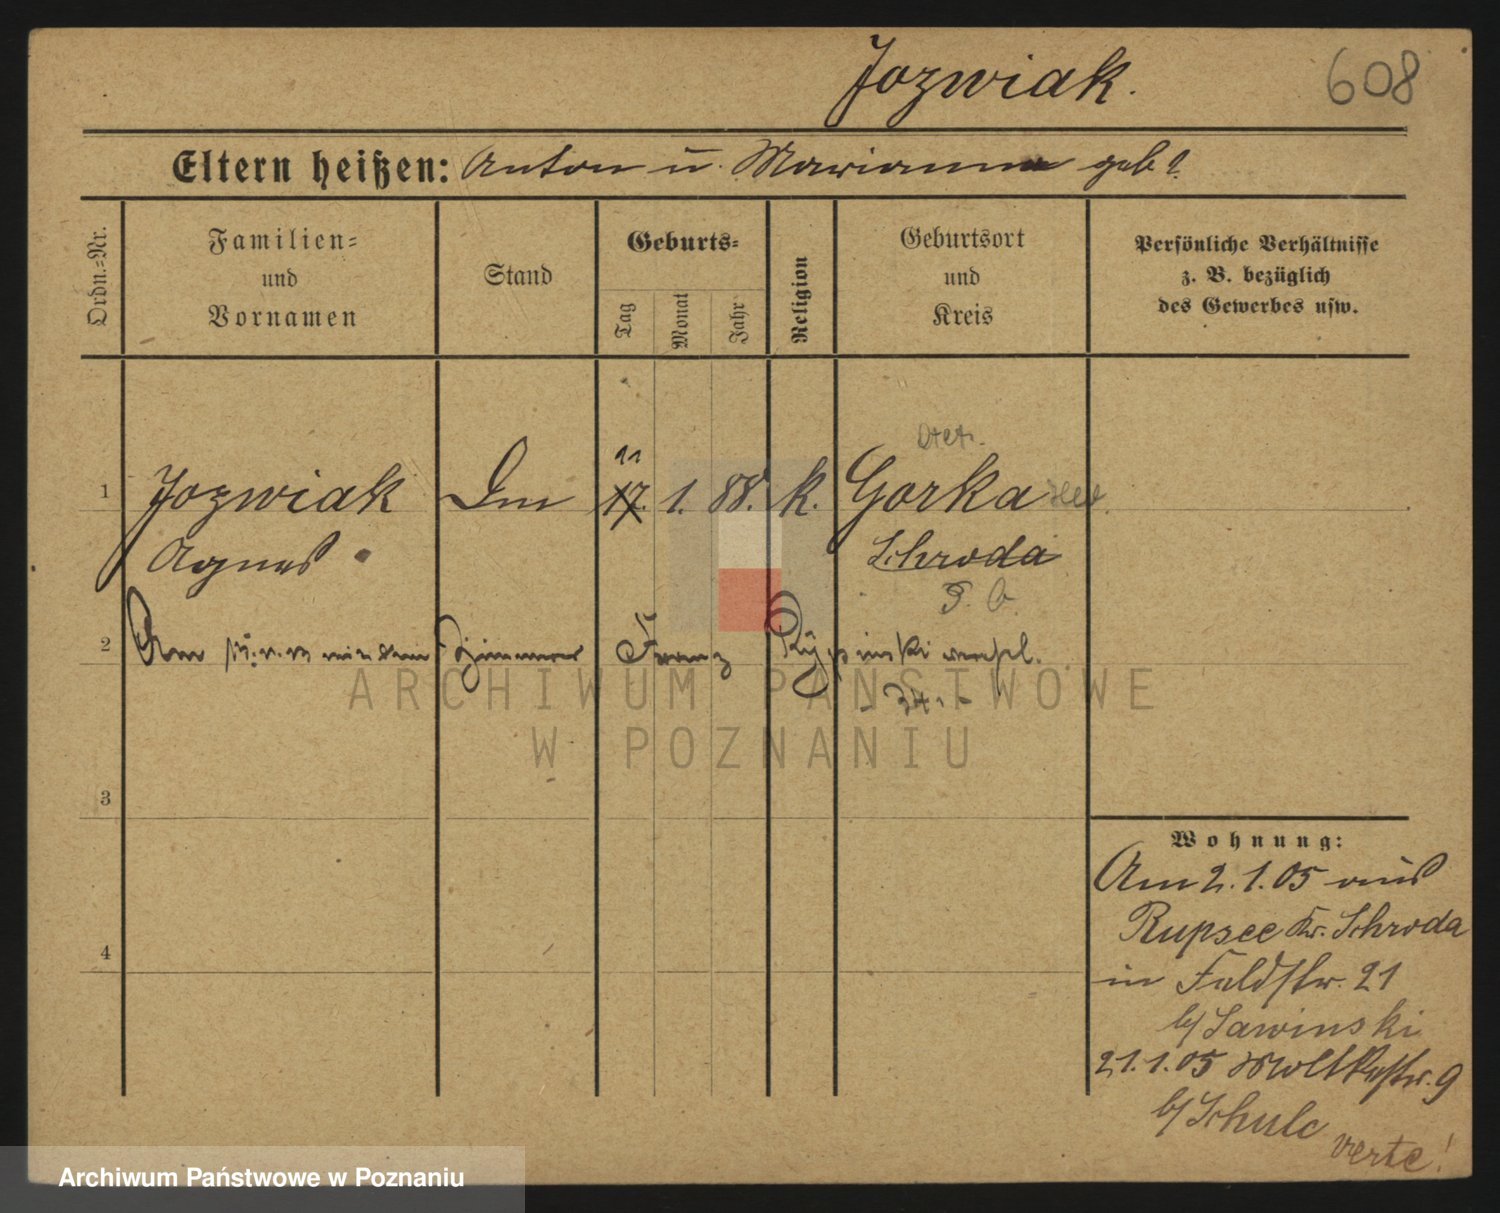 Jozwiak. 608
Eltern heißen: Anton u. Marianna geb?
Ordn.-Nr.
Familien-
und
Vornamen
Stand
Geburts-
Tag
Monat
Jahr
Religion
Geburtsort
und
Kreis
Persönliche Verhältnisse
z. B. bezüglich
des Gewerbes usw.
11
1 Jozwiak 17. 1. 88. k. Gorka
Agnes Schroda
P. B.
2 Am Zimmerer Franz
ARCHIWUM PAŃSTWOWE
W POZNANIU
3
Wohnung:
Am 2.1.05 aus
Rupsee Kr. Schroda
4
in Feldstr. 21
b/ Sawinski
21.1.05 Moltkestr. 9
b/ Schulc
verte!
Archiwum Państwowe w Poznaniu